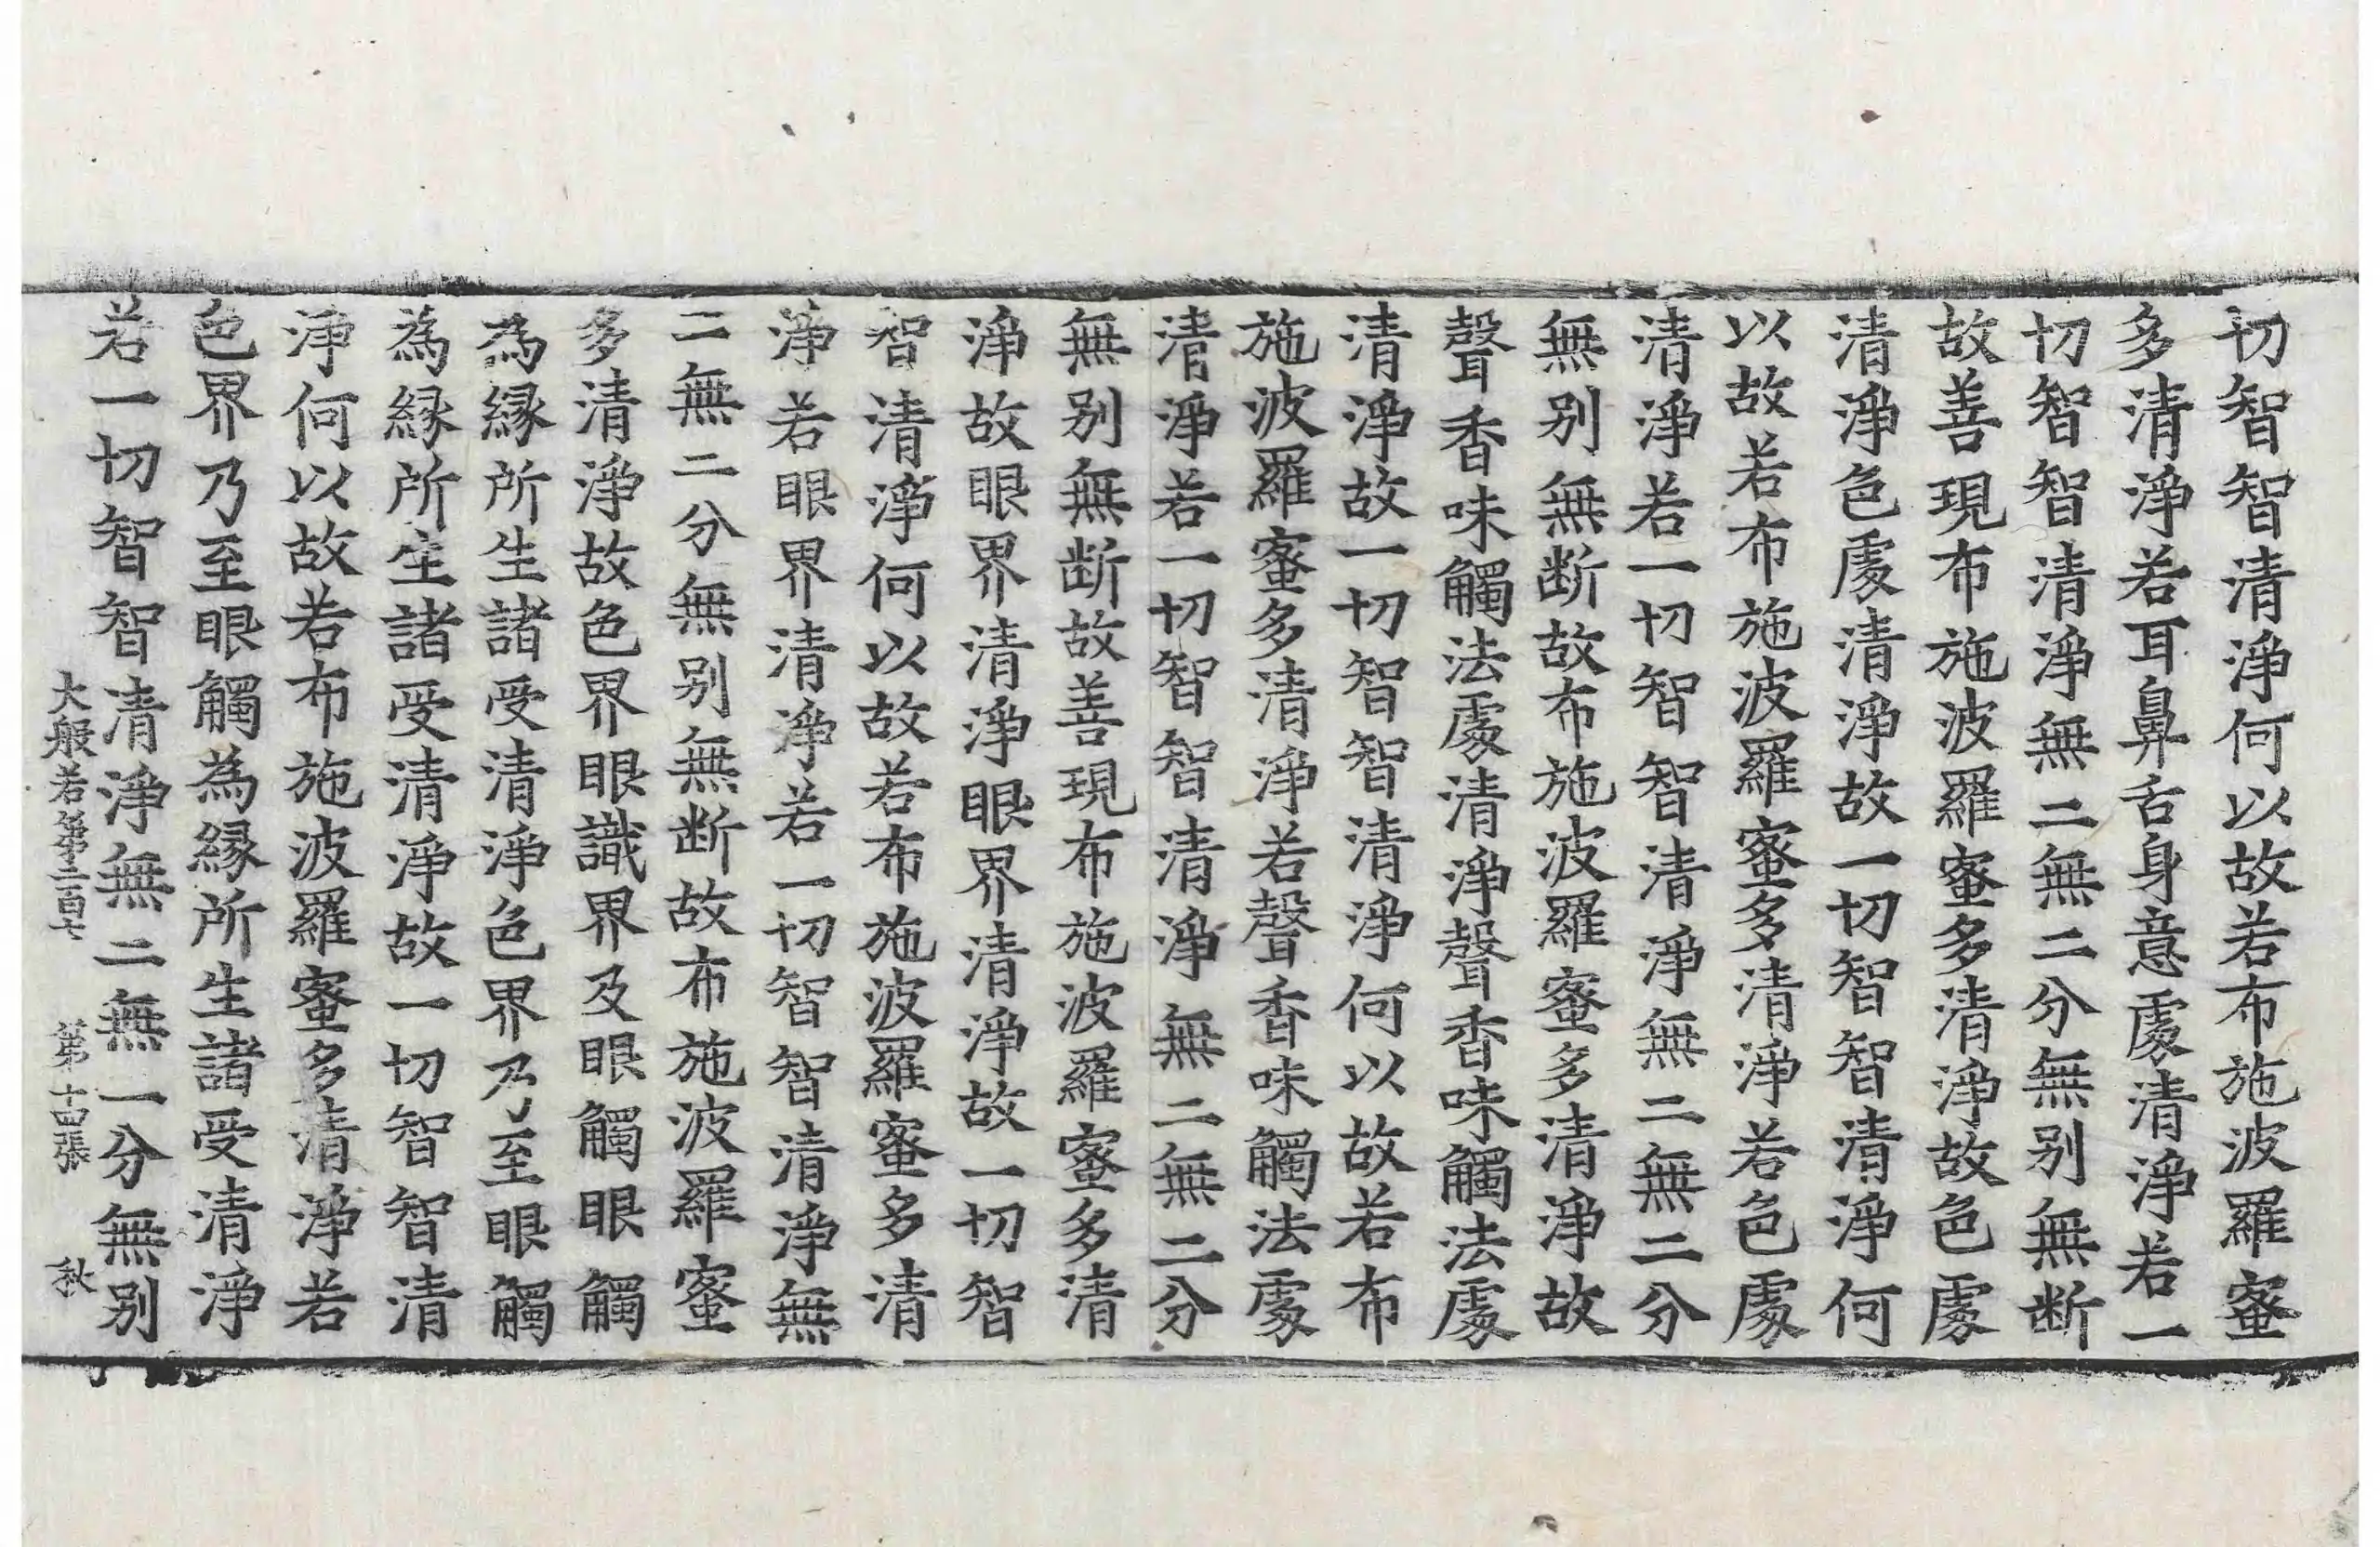 切智智清淨何以故若布施波羅蜜
多清淨若耳鼻舌身意處清淨若一
切智智清淨無二無二分無别無断
故善現布施波羅蜜多清淨故色處
清淨色處清淨故一切智智清淨何
以故若布施波羅蜜多清淨若色處
清淨若一切智智清淨無二無二分
無别無断故布施波羅蜜多清淨故
聲香味觸法處清淨聲香味觸法處
清淨故一切智智清淨何以故若布
施波羅蜜多清淨若聲香味觸法處
清淨若一切智智清淨無二無二分
無别無断故善現布施波羅蜜多清
淨故眼界清淨眼界清淨故一切智
智清淨何以故若布施波羅蜜多清
淨若眼界清淨若一切智智清淨無
二無二分無别無断故布施波羅蜜
多清淨故色界眼識界及眼觸眼觸
為緣所生諸受清淨色界乃至眼觸
為緣所生諸受清淨故一切智智清
淨何以故若布施波羅蜜多清淨若
色界乃至眼觸為緣所生諸受清淨
若一切智智清淨無二無二分無别
大般若第二百七 第十四張 秋